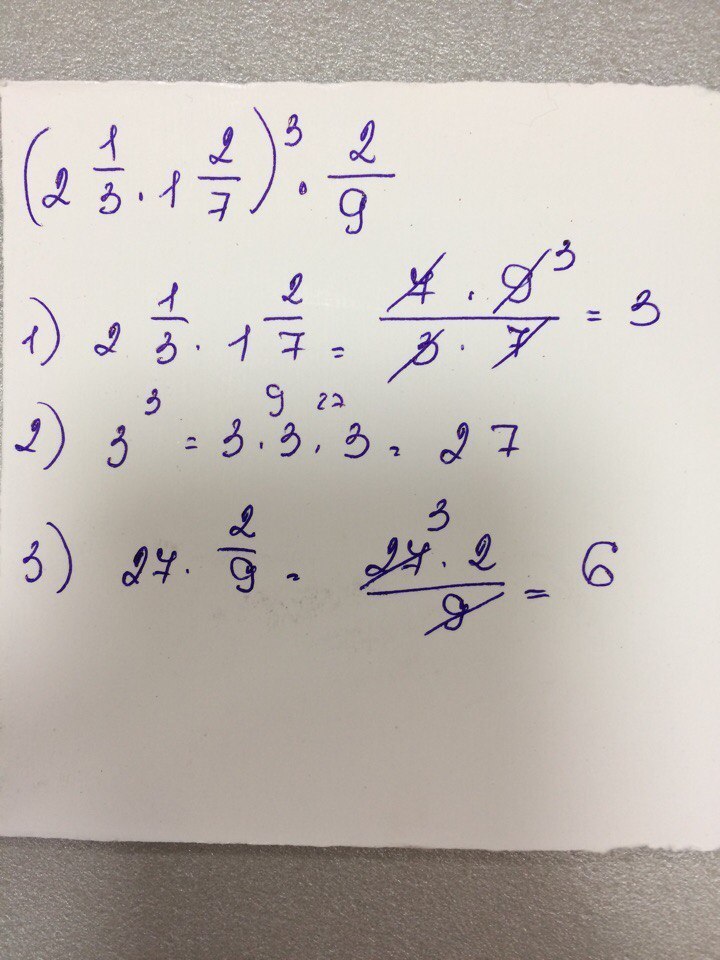 (2 1/3 · 1 2/7)³ · 2/9
1) 2 1/3 · 1 2/7 = (7 · 9 ³)/(3 · 7) = 3
2) 3³ = 3 · 3 · 3 = 27 9 27
3) 27 · 2/9 = (27 ³ · 2)/9 = 6